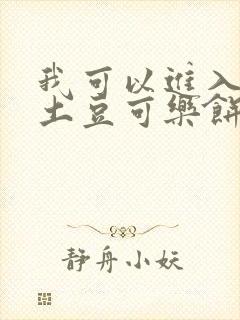 我可以進入
土豆可樂餅
静舟小妖